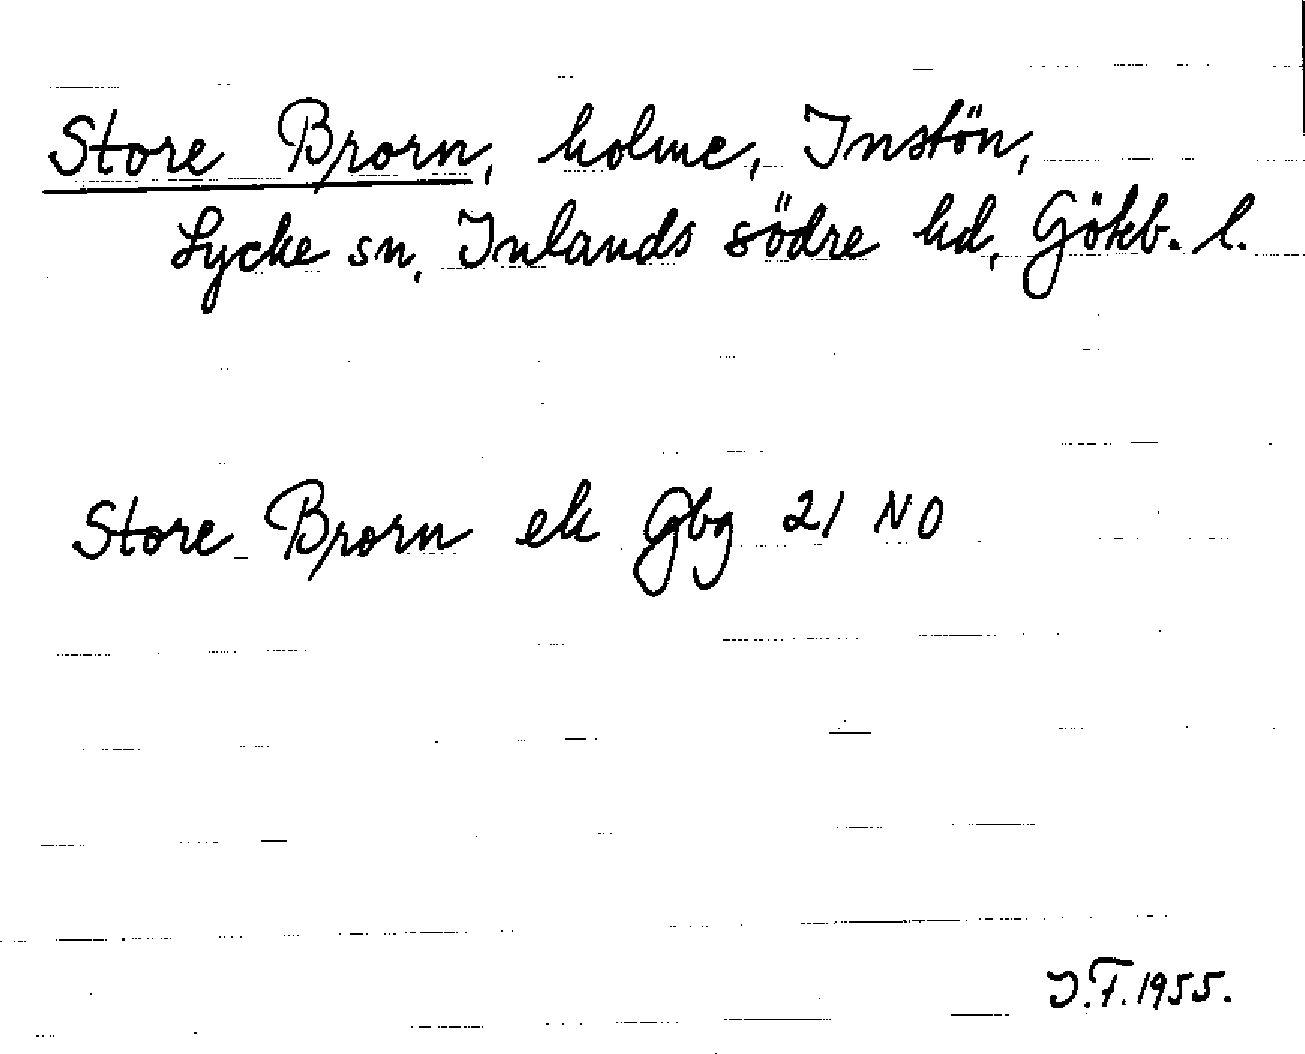 Store Brorn, holme, Instön,
Lycke sn, Inlands södre hd, Göteb. l.
Store Brorn ek Gbg 21 NO
I.F. 1955.